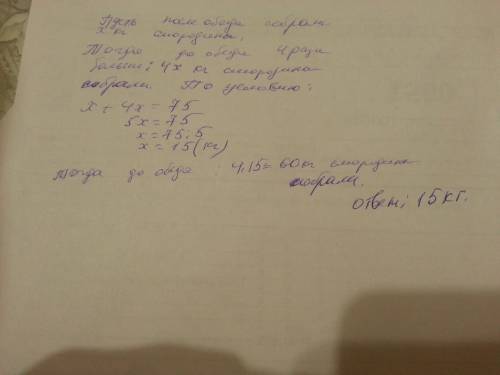 Пусть после обеда собрали
х кг смородины.
Тогда до обеда 4 раза
больше; 4х кг смородины
собрали. По условию:
х + 4х = 75
5х = 75
х = 75:5
х = 15 (кг)
Тогда до обеда : 4.15 = 60 кг смородины
собрали.
ответ; 15 кг.